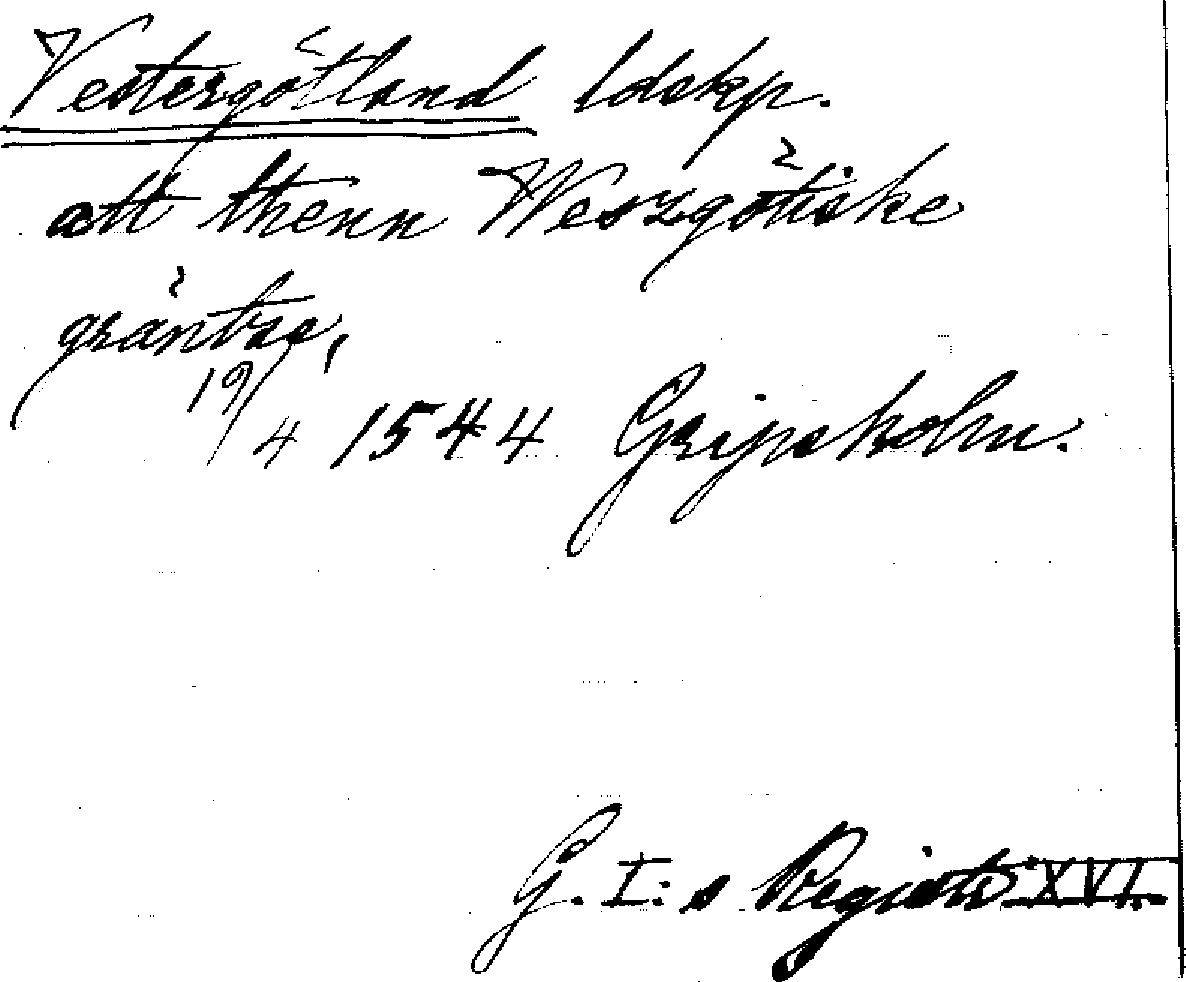 Vestergötland ldskp.
att thenn Weszgötiske
gräntze,
19/4 1544 Gripsholm.
G. I: s Registr XVI.